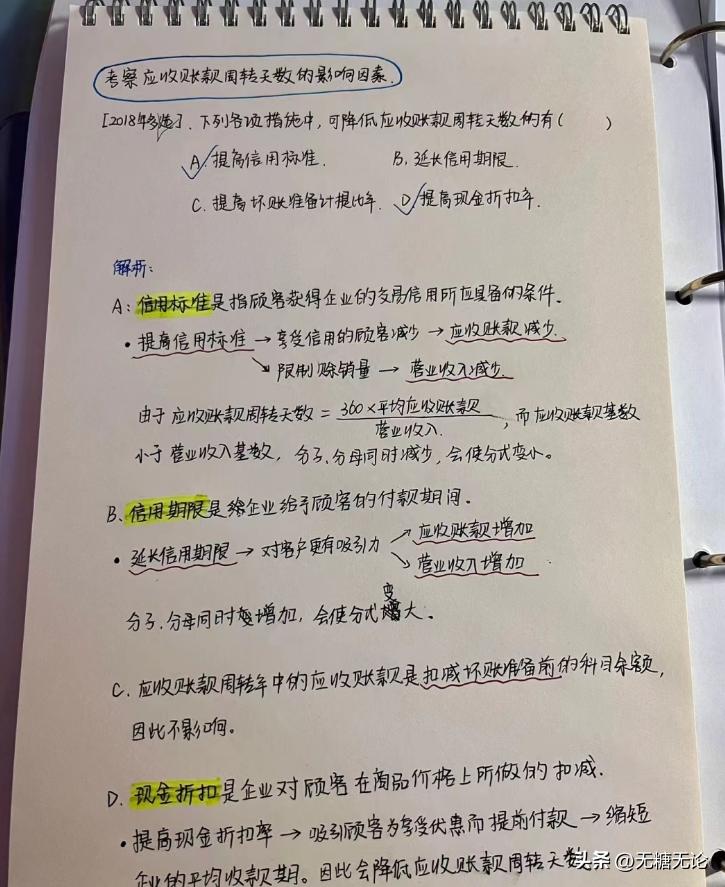 考察应收账款周转天数的影响因素.
[2018年多选]. 下列各项措施中,可降低应收账款周转天数的有( )
A.提高信用标准. B.延长信用期限.
C.提高坏账准备计提比率. D.提高现金折扣率.
解析:
A:信用标准是指顾客获得企业的交易信用所应具备的条件.
·提高信用标准→享受信用的顾客减少→应收账款减少.
↘限制赊销量→营业收入减少.
由于应收账款周转天数=360×平均应收账款/营业收入,而应收账款基数
小于营业收入基数,分子.分母同时减少,会使分式变小。
B.信用期限是企业给予顾客的付款期间.
·延长信用期限→对客户更有吸引力↗应收账款增加
↘营业收入增加.
分子.分母同时增加,会使分式变大.
C.应收账款周转率中的应收账款是扣减坏账准备前的科目余额,
因此不影响。
D.现金折扣是企业对顾客在商品价格上所做的扣减.
·提高现金折扣率→吸引顾客为享受优惠而提前付款→缩短
企业的平均收款期。因此会降低应收账款周转天数
头条@无糖无论